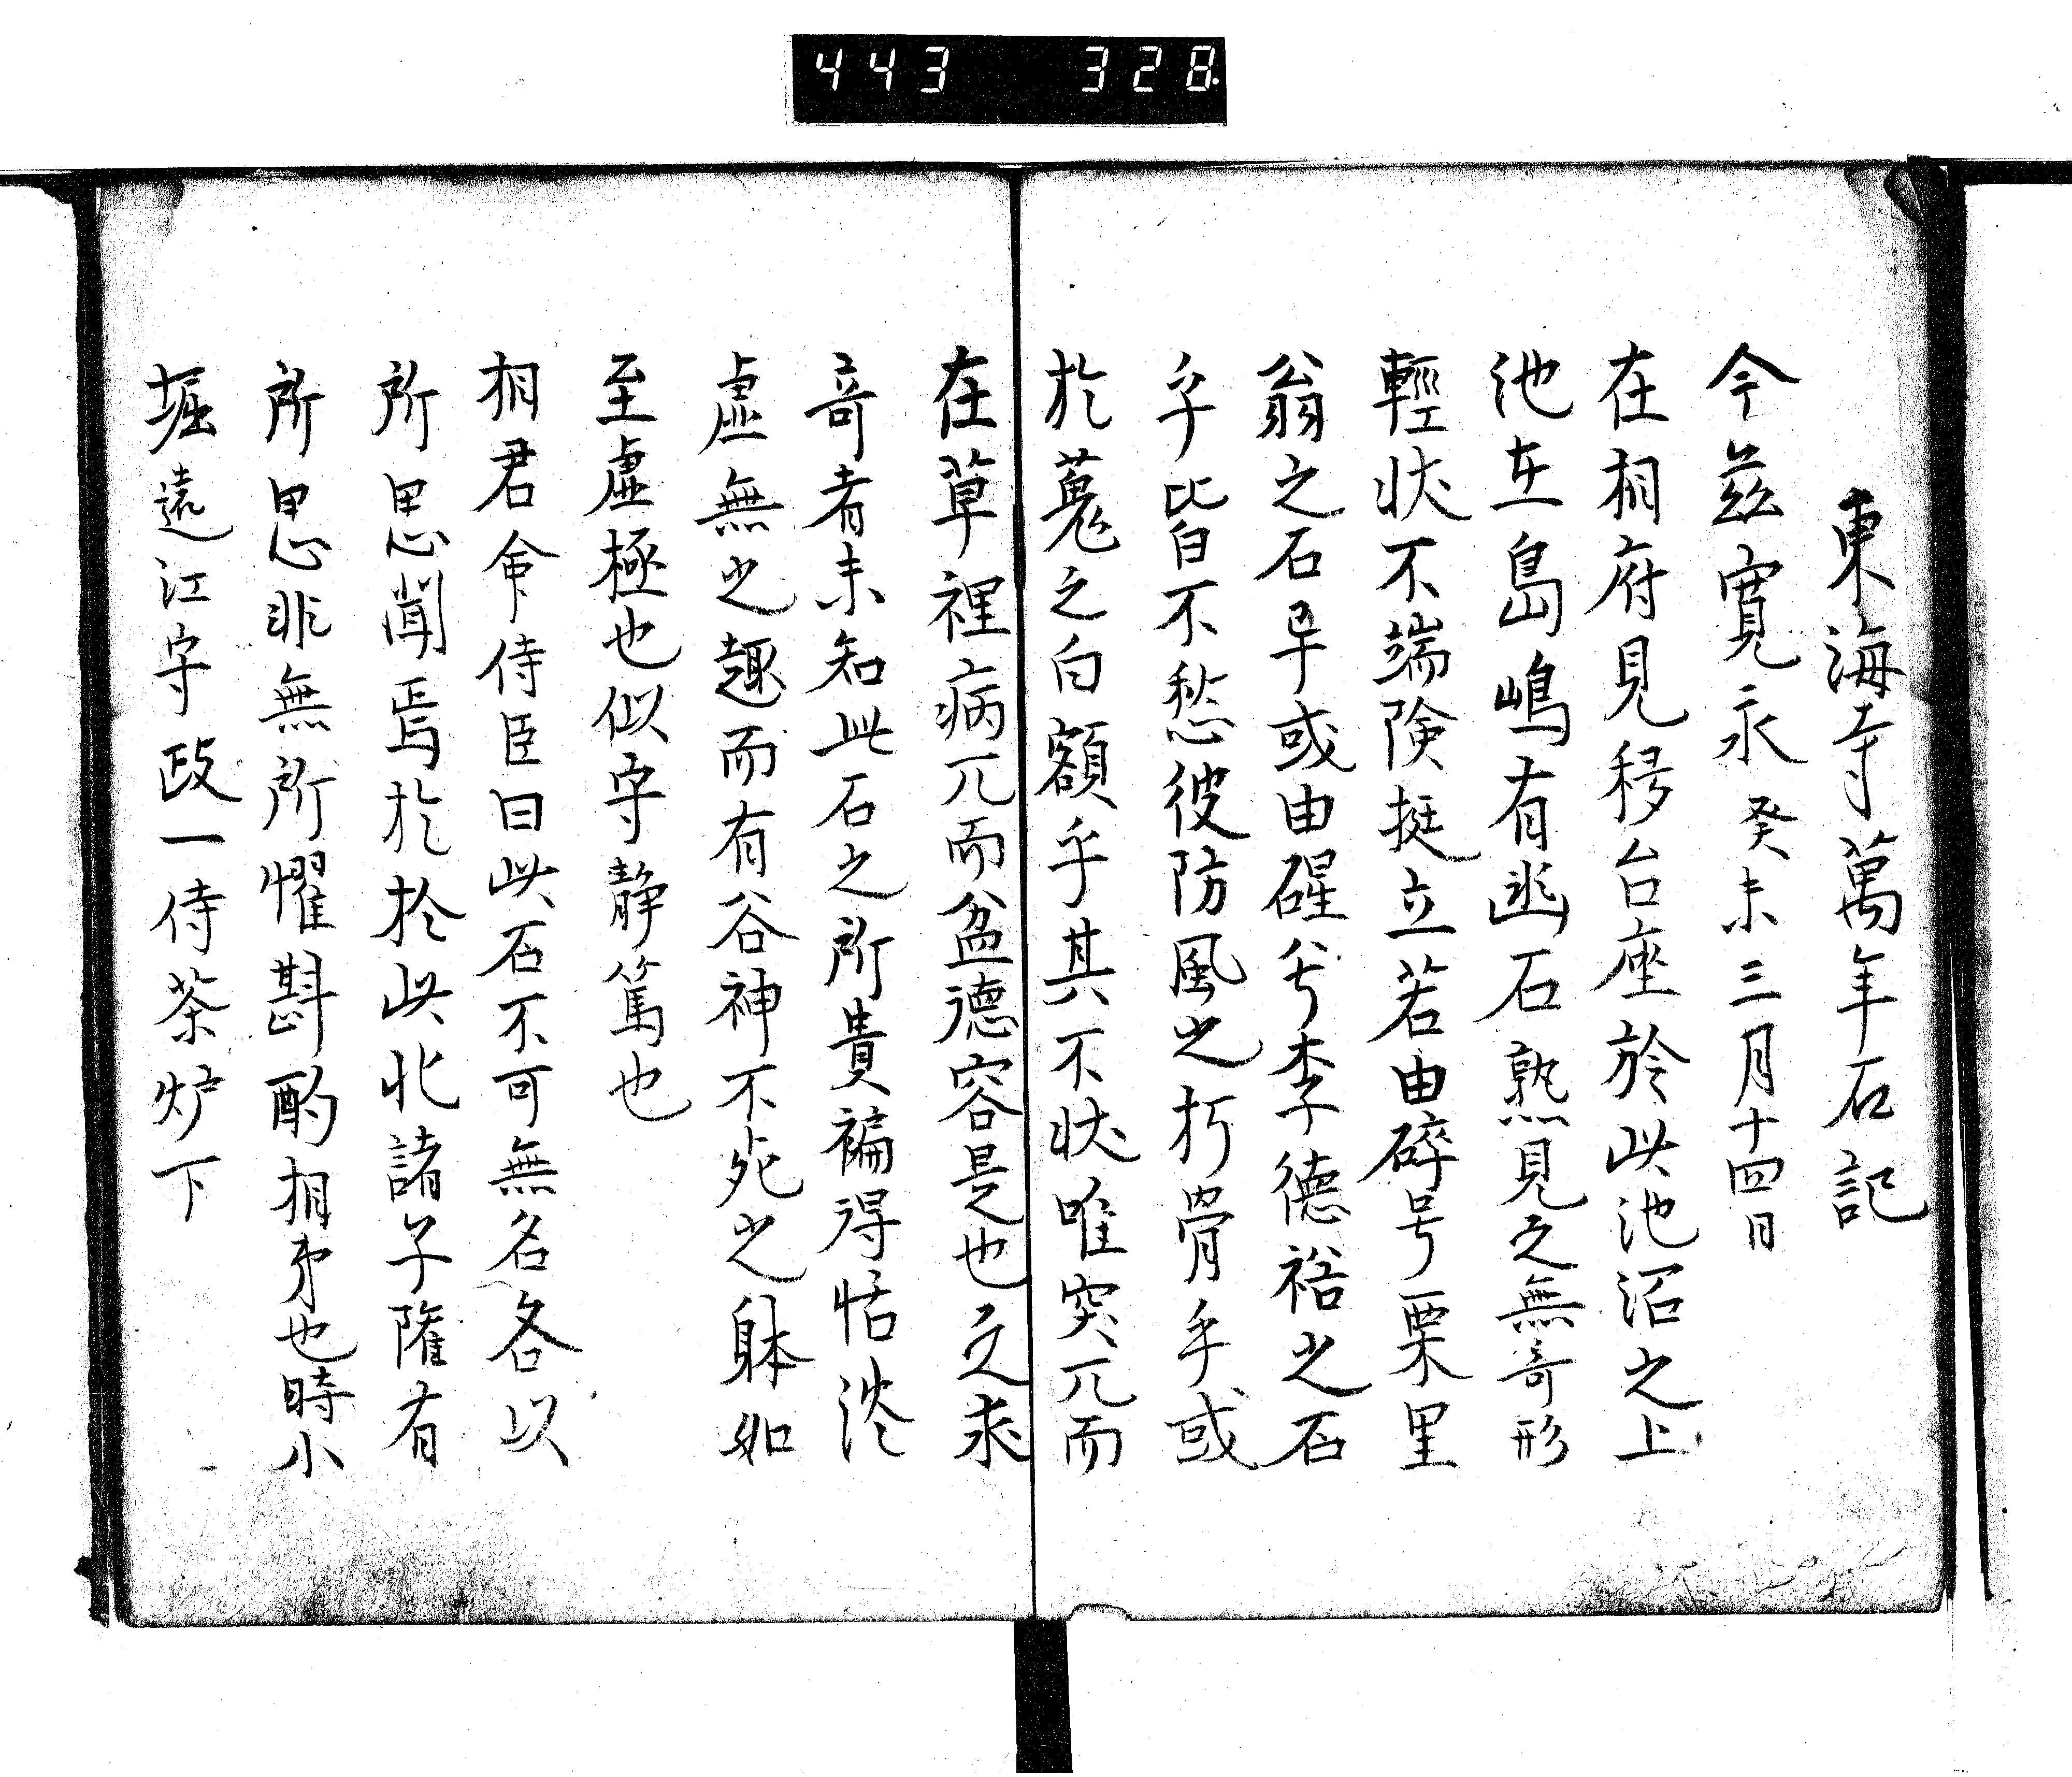 443 328
東海寺萬年石記
今茲寛永癸未三月十四日
在相府見移台座於此池沼之上
池在島嶋有幽石熟見之無奇形
輕状不端険挺立若由碎号栗里
翁之石乎或由醒兮李德裕之石
乎皆不愁彼防風之朽骨乎或
於蒐之白額乎其不状唯突兀而
在草裡病兀而盆德容是也之求
奇者未知此石之所貴褊得恬淡
虚無之趣而有谷神不死之躰如
至虚極也似守静篤也
相君命侍臣曰此石不可無名各以
所思聞焉於於此北諸子隆有
所思非無所懼斟酌相弟也時小
堀遠江守政一侍茶炉下